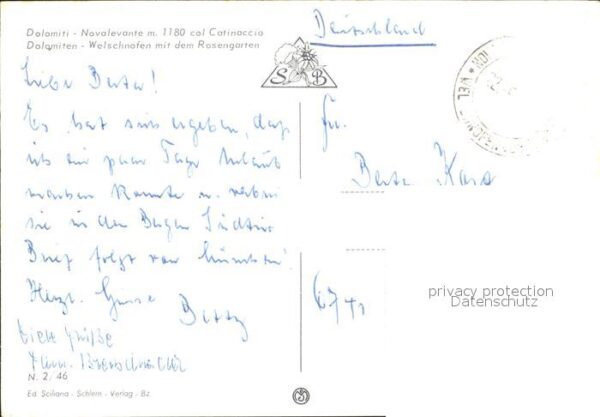 Dolomiti - Novalevante m. 1180 col Catinaccio
Dolomiten - Welschnofen mit dem Rosengarten
Deutschland
S B
Liebe Berta!
Es hat sich ergeben, daß
ich ein paar Tage Urlaub
machen konnte u. verbr
sie in den Bergen Südtir
Brief folgt von
Herzl. Grüße
Betty
Viele Grüße
Fr.
Berta
N. 2/46
Ed. Sciliana - Schlern - Verlag - Bz.
privacy protection
Datenschutz